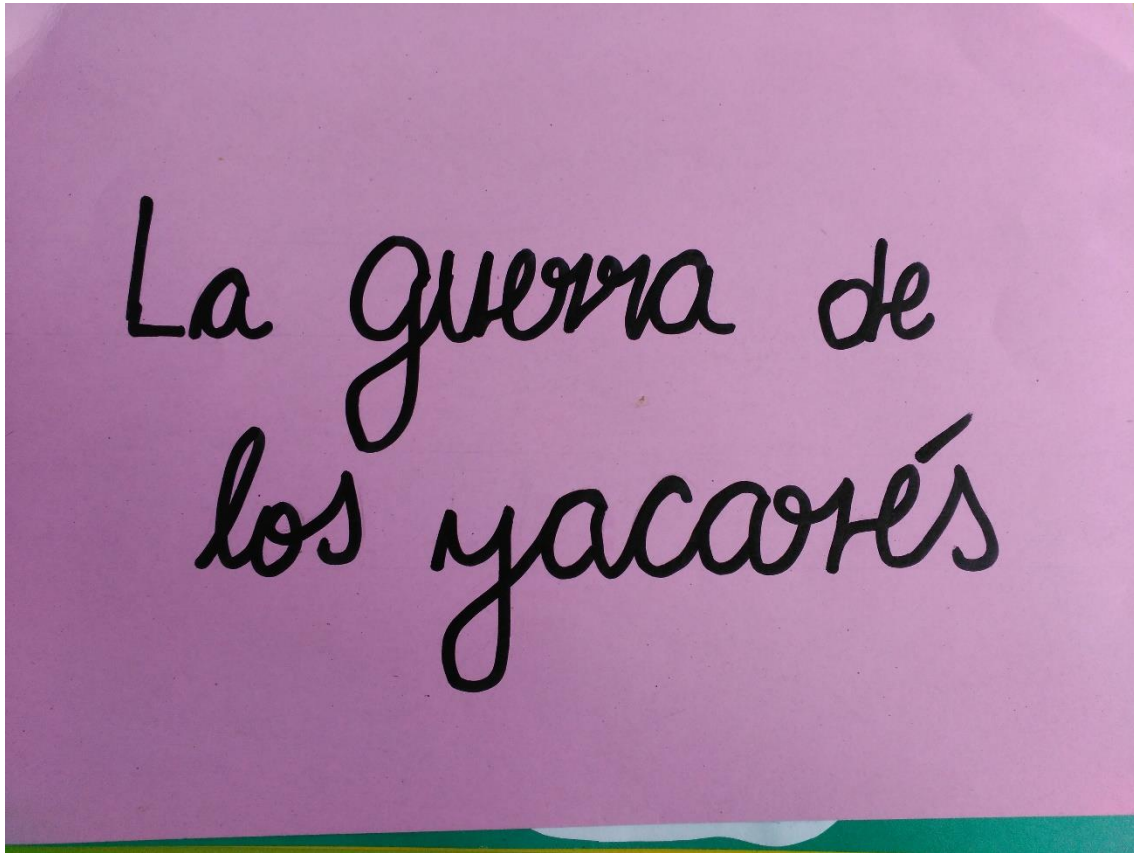 La guerra de
los yacarés